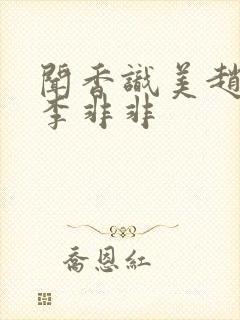 聞香識美趙
李非非
喬恩紅